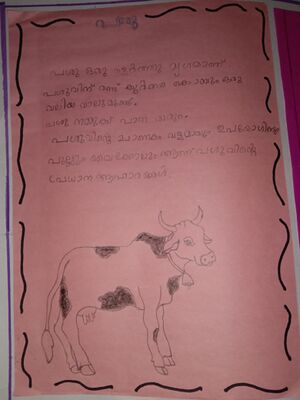 പശു
പശു ഒരു വളർത്തു മൃഗമാണ്
പശുവിന് രണ്ട് കൂർത്ത കൊമ്പും ഒരു
വലിയ വാലുമുണ്ട്.
പശു നമുക്ക് പാൽ തരും.
പശുവിന്റെ ചാണകം വളമായും ഉപയോഗിക്കും
പുല്ലും വൈക്കോലും ആണ് പശുവിന്റെ
പ്രധാന ആഹാരങ്ങൾ.